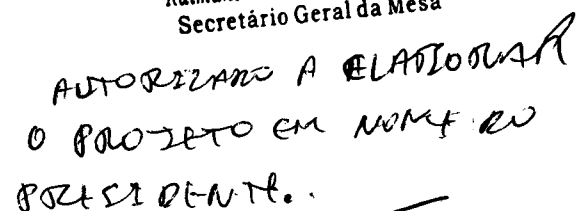 Secretário Geral da Mesa
AUTORIZADO A ELABORAR
O PROJETO EM NOME DO
PRESIDENTE.